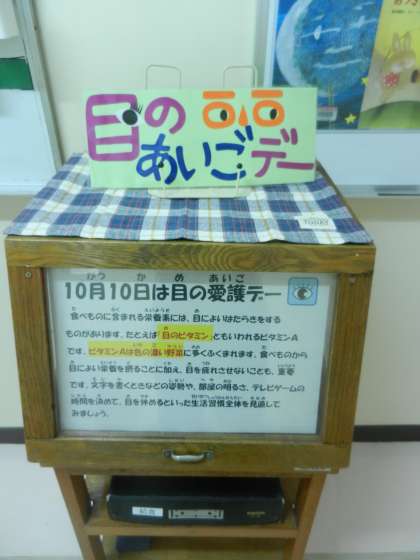 目の
あいごデー
がつ か め あいご
10月10日は目の愛護デー
食べものに含まれる栄養素には、目によいはたらきをする
ものがあります。たとえば「目のビタミン」ともいわれるビタミンA
です。ビタミンAは色の濃い野菜に多くふくまれます。食べものから
目によい栄養を摂ることに加え、目を疲れさせないことも、重要
です。文字を書くときなどの姿勢や、部屋の明るさ、テレビゲームの
時間を決めて、目を休めるといった生活習慣全体を見直して
みましょう。